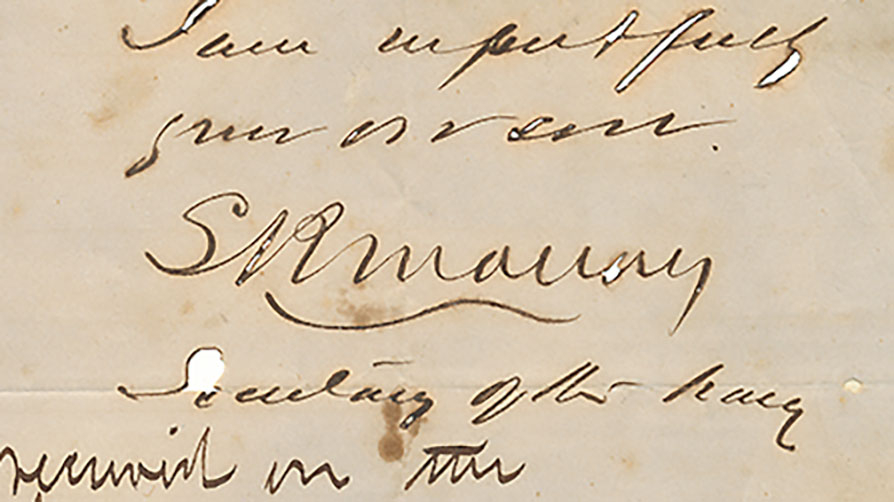 I am respectfully
your obt servt.
S R Mallory
Secretary of the Navy
received in the